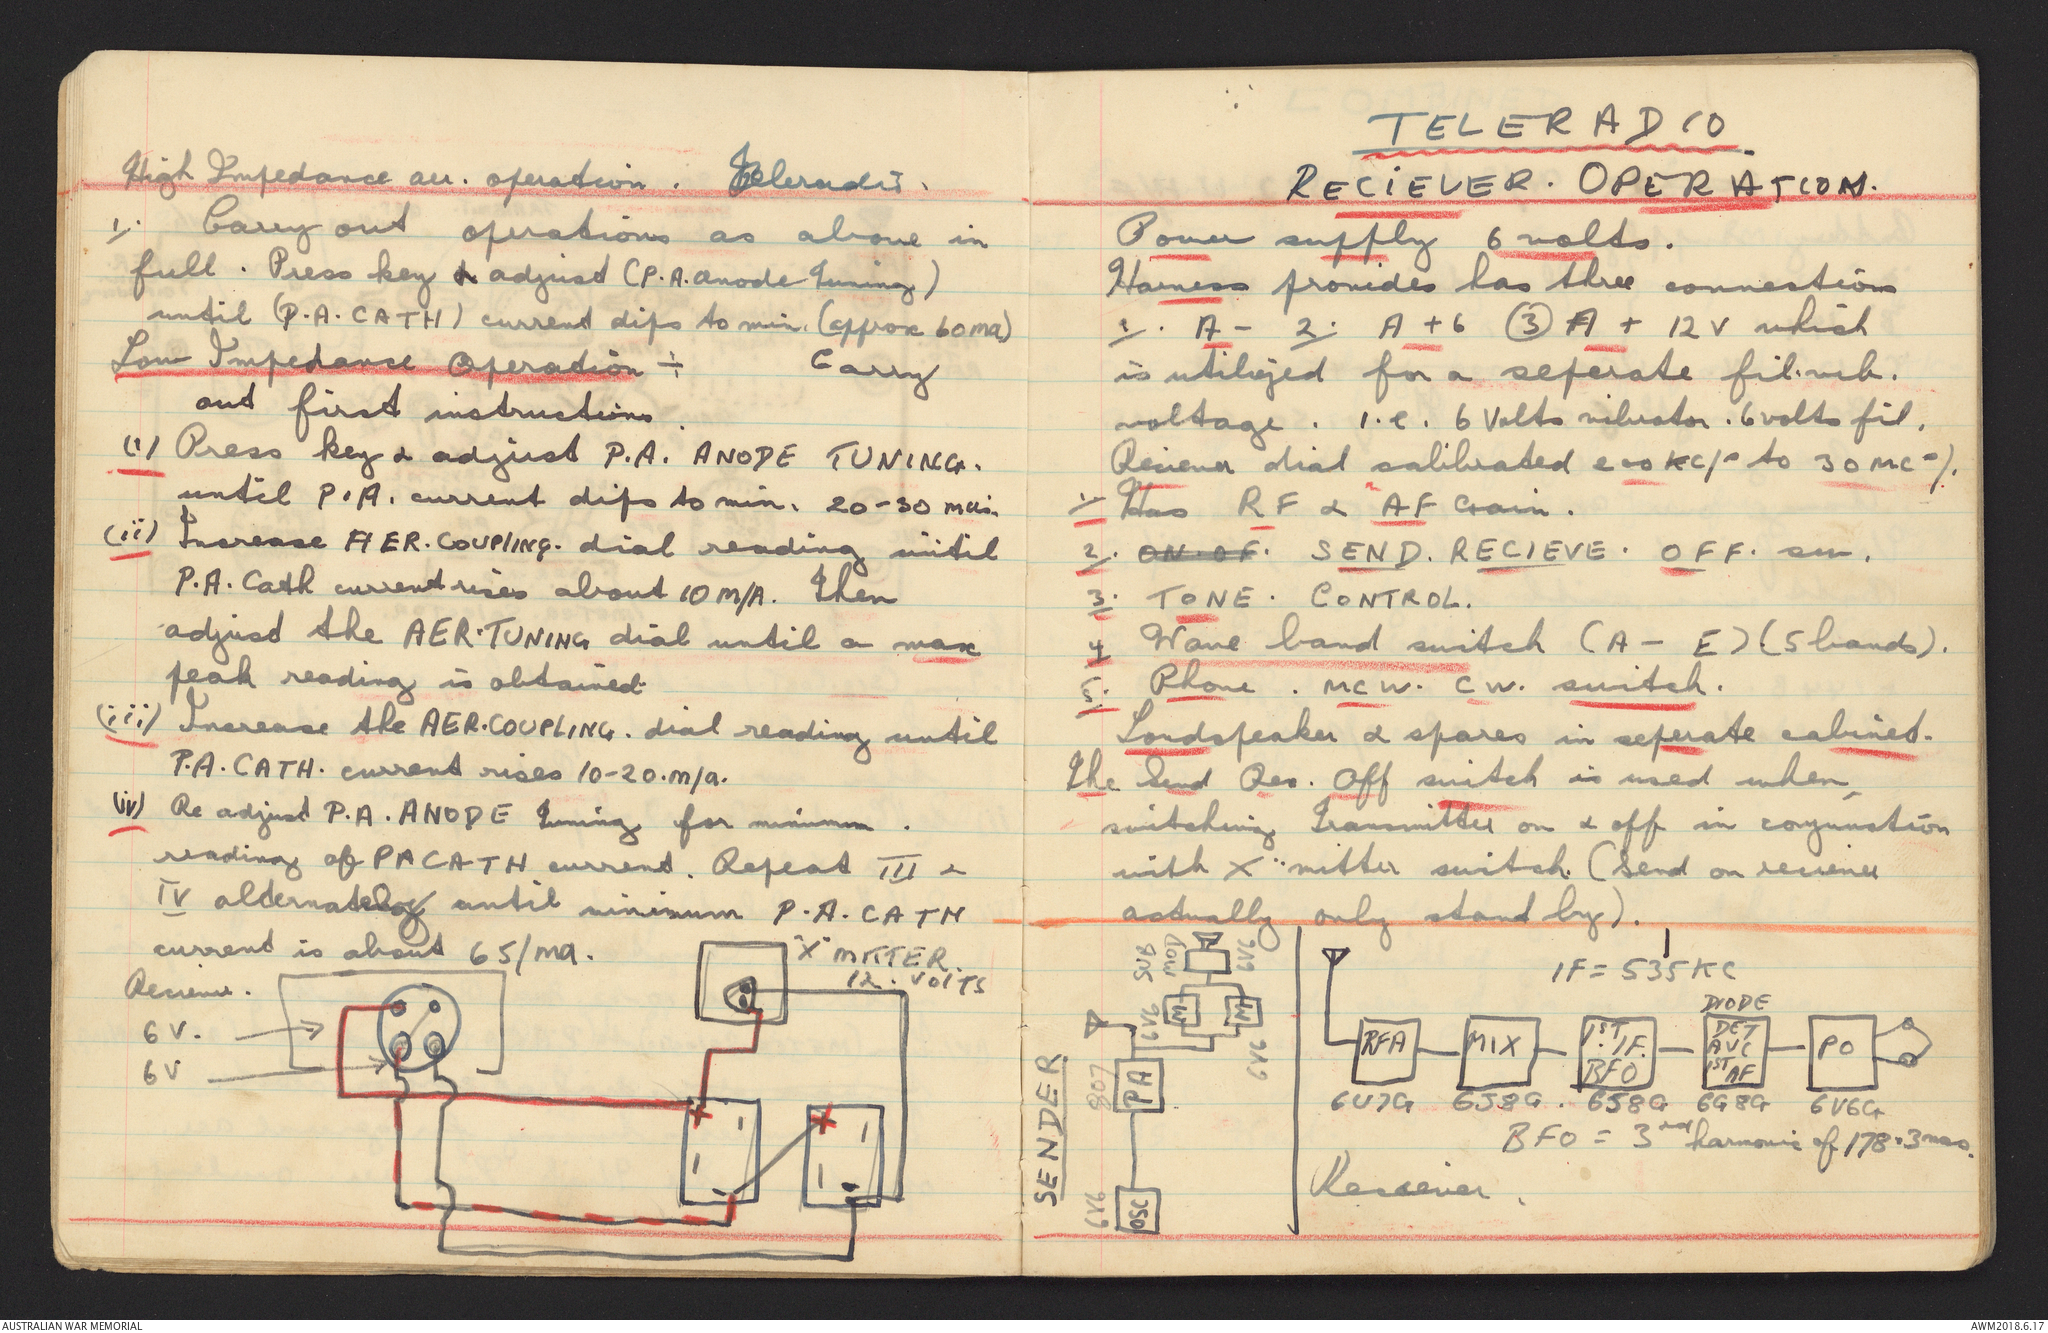 High Impedance aer. operation. Teleradio.
1. Carry out operations as above in
full. Press key & adjust (P.A. anode Tuning)
until (P.A. CATH) current dips to min. (approx 60 ma)
Low Impedance Operation ÷ Carry
out first instructions.
(i) Press key & adjust P.A. ANODE TUNING.
until P.A. current dips to min. 20-30 m
(ii) Increase AER. COUPLING. dial reading until
P.A. Cath current rises about 10 M/A. Then
adjust the AER. TUNING dial until a max
peak reading is obtained.
(iii) Increase the AER. COUPLING. dial reading until
P.A. CATH. current rises 10-20. m/a.
(iv) Re adjust P.A. ANODE Tuning for minimum.
reading of PA CATH current. Repeat III &
IV alternately until minimum P.A. CATH
current is about 65/ma.
"X" MITTER.
12. VOLTS
Reciever.
6 V.
6 V
TELERADIO
RECIEVER. OPERATION.
Power supply 6 volts.
Harness provides has three connections
1. A - 2. A + 6 (3) A + 12 V which
is utilized for a seperate fil. vib.
voltage. I.e. 6 Volts vibrator. 6 volts fil.
Reciever dial calibrated 200 KC/s to 30 MC s/.
1/ Has RF & AF Gain.
2. ON. OF. SEND. RECIEVE. OFF. sw.
3. TONE. CONTROL.
4 Wave band switch (A - E) (5 bands).
5. Phone. MCW. CW. switch.
Loudspeaker & spares in seperate cabinet.
The Send Rec. Off switch is used when
switching Transmitter on & off in conjunction
with X "mitter switch. (Send on reciever
actually only stand by).
SENDER
SUB MOD
6V6
M
M
6V6
6V6
807
PA
6V6
OSC
IF = 535 KC
DIODE
RFA
MIX
1ST IF. BFO
DET AVC 1ST AF
PO
6U7G 6J8G. 6J8G 6G8G 6V6G
BFO = 3rd harmonic of 178.3
Reciever.
AUSTRALIAN WAR MEMORIAL
AWM2018.6.17